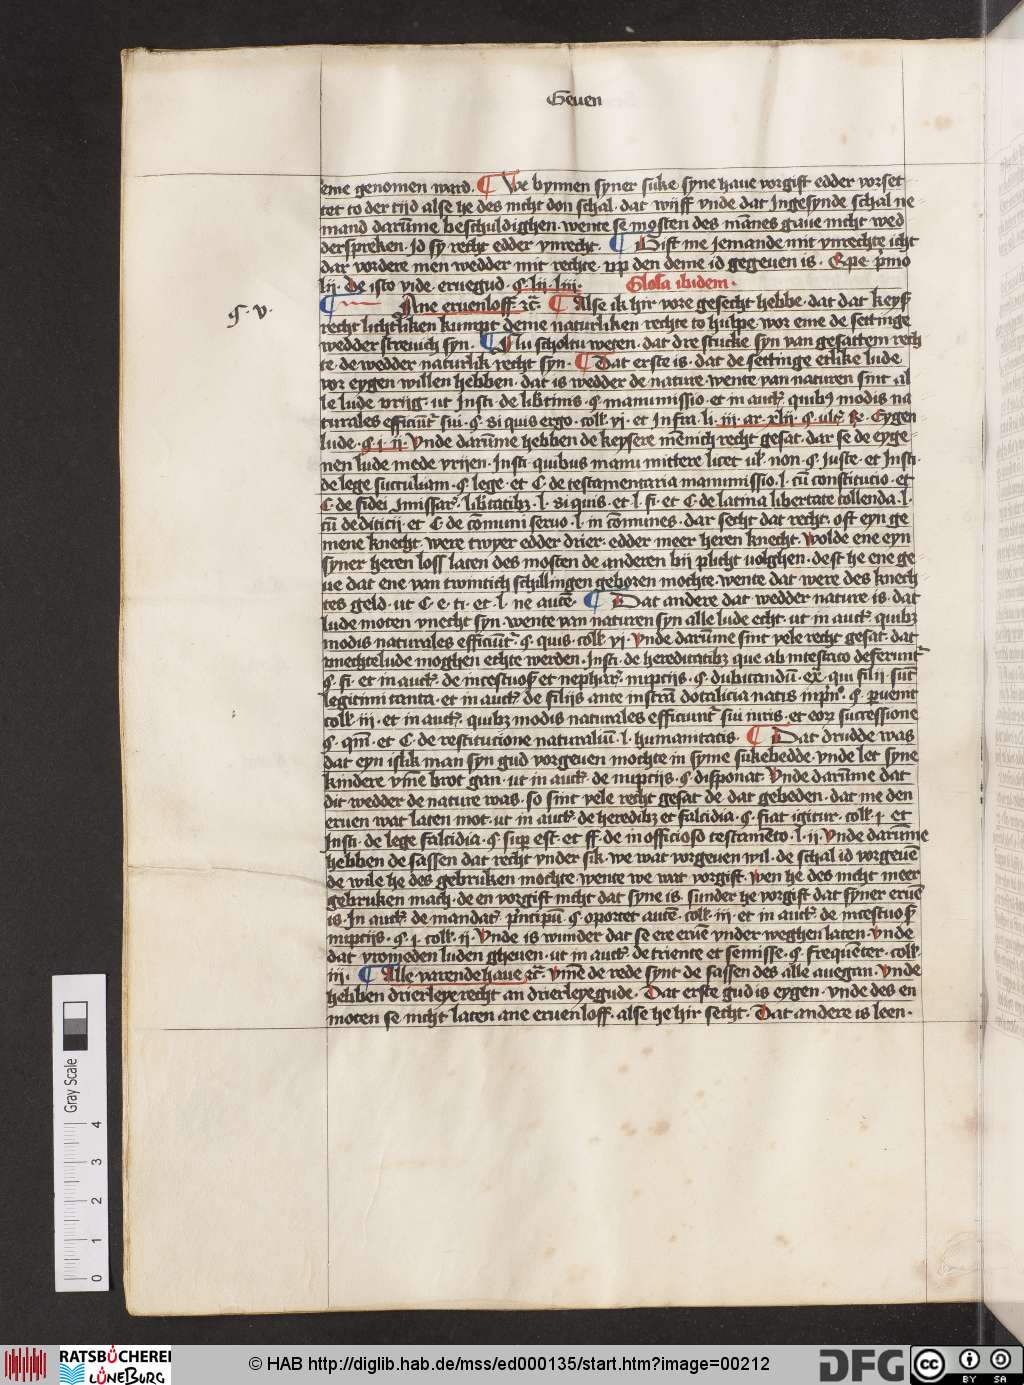 Geuen
eme genomen ward. ¶ We bynnen syner suke syne haue vorgift edder vorset
tet to der tijd alse he des nicht don schal. dat wijff vnde dat Ingesynde schal ne
mand darūme beschuldighen. wente se mosten des mānes gaue nicht wed
derspreken. Id sy recht edder vnrecht. ¶ Gift me Jemande mit vnrechte icht
dar vordere men wedder mit rechte. vp den deme id gegeuen is. Expe. pͥmo
lij. De isto vide. eruegud. §. lij. liij. Glosa ibidem.
§. v.
¶ Ane eruenloff. ꝛc̄. ¶ Alse ik hir vore gesecht hebbe. dat dat keysz
recht lichtliken kumpt deme naturliken rechte to hulpe. wor eme de settinge
wedder streuich syn. ¶ Nu scholtu weten. dat dre stucke syn van gesattem rech
te. de wedder naturlik recht syn. ¶ Dat erste is. dat de settinge etlike lude
vor eygen willen hebben. dat is wedder de nature. wente van naturen sint al
le lude vrijg. ut Insti. de lib'tinis. §. manumissio. et in auctͣ. quibꝫ modis na
turales efficiūtͬ sui. §. si quis ergo. coll. vj. et Infra li. iij. ar. xlij. §. ultͣ. Eygen
lude. §. i. ij. Vnde darūme hebben de keysere mēnich recht gesat. dar se de eyge
nen lude mede vrijen. Insti. quibus manu mittere licet ul'. non. §. Juste. et Insti.
de lege succuliam. §. lege. et C. de testamentaria manumissio. l. cū constitucio. et
C. de fidei ꝯmissarͣ. lib'tatibꝫ. l. si quis. et. l. fi. et C. de latina libertate tollenda. l.
cū dediticij. et C. de cōmuni seruo. l. in cōmunes. dar secht dat recht. oft eyn ge
mene knecht. were twyer edder drier. edder meer heren knecht. Wolde ene eyn
syner heren loss laten des mosten de anderen bij plicht uolghen. dest he ene ge
ue dat ene van twintich schillingen geboren mochte. wente dat were des knech
tes geld. ut C. e. ti. et. l. ne autē. ¶ Dat andere dat wedder nature is. dat
lude moten vnecht syn. wente van naturen syn alle lude echt. ut in auctͣ. quibꝫ
modis naturales efficiūtͬ. §. quis. coll. vj. Vnde darūme sint vele recht gesat. dat
vnechte lude moghen echte werden. Insti. de hereditatibꝫ que ab intestato deferuntͬ
§. fi. et in auctͣ. de incestuos et nephar. nupcijs. §. dubitandū. ex. qui filij sūt
legitimi tanta. et in auctͣ. de filijs ante instrā dotalicia natis inpn̄. §. ꝑuenit
coll. iij. et in auctͣ. quibꝫ modis naturales efficiuntͬ sui iuris. et eorꝫ successione
§. qm̄. et C. de restitucione naturaliū. l. humanitatis. ¶ Dat drudde was
dat eyn islik man syn gud vorgeuen mochte in syme sukebedde. vnde let syne
kindere vm̄e brot gan. ut in auctͣ. de nupcijs. §. disponat. Vnde darūme dat
dit wedder de nature was. so sint vele recht gesat de dat gebeden. dat me den
eruen wat laten mot. ut in auctͣ. de heredibꝫ et falcidia. §. fiat igitur. coll. j. et
Insti. de lege falcidia. §. suꝑ est. et ff. de in officioso testamēto. l. ij. Vnde darūme
hebben de sassen dat recht vnder sik. we wat vorgeuen wil. de schal id vorgeuē
de wile he des gebruken mochte. wente we wat vorgift. Wen he des nicht meer
gebruken mach. de en vorgift nicht dat syne is. sunder he vorgift dat syner eruē
is. In auctͣ. de mandat. pͥncipū. §. oportet autē. coll. iij. et in auctͣ. de incestuos
nupcijs. §. j. coll. ij. Vnde is wunder dat se ere eruē vnder weghen laten. Vnde
dat vromeden luden gheuen. ut in auctͣ. de triente et semisse. §. frequēter. coll.
iij. ¶ Alle varende haue ꝛc̄. Vm̄e de rede synt de sassen des alle auegan. Vnde
hebben drierleye recht an drierleye gude. Dat erste gud is eygen. vnde des en
moten se nicht laten ane eruen loff. alse he hir secht. Dat andere is leen.
Gray Scale
0 1 2 3 4
RATSBÜCHEREI
LÜNEBURG
© HAB http://diglib.hab.de/mss/ed000135/start.htm?image=00212
DFG
cc
BY SA